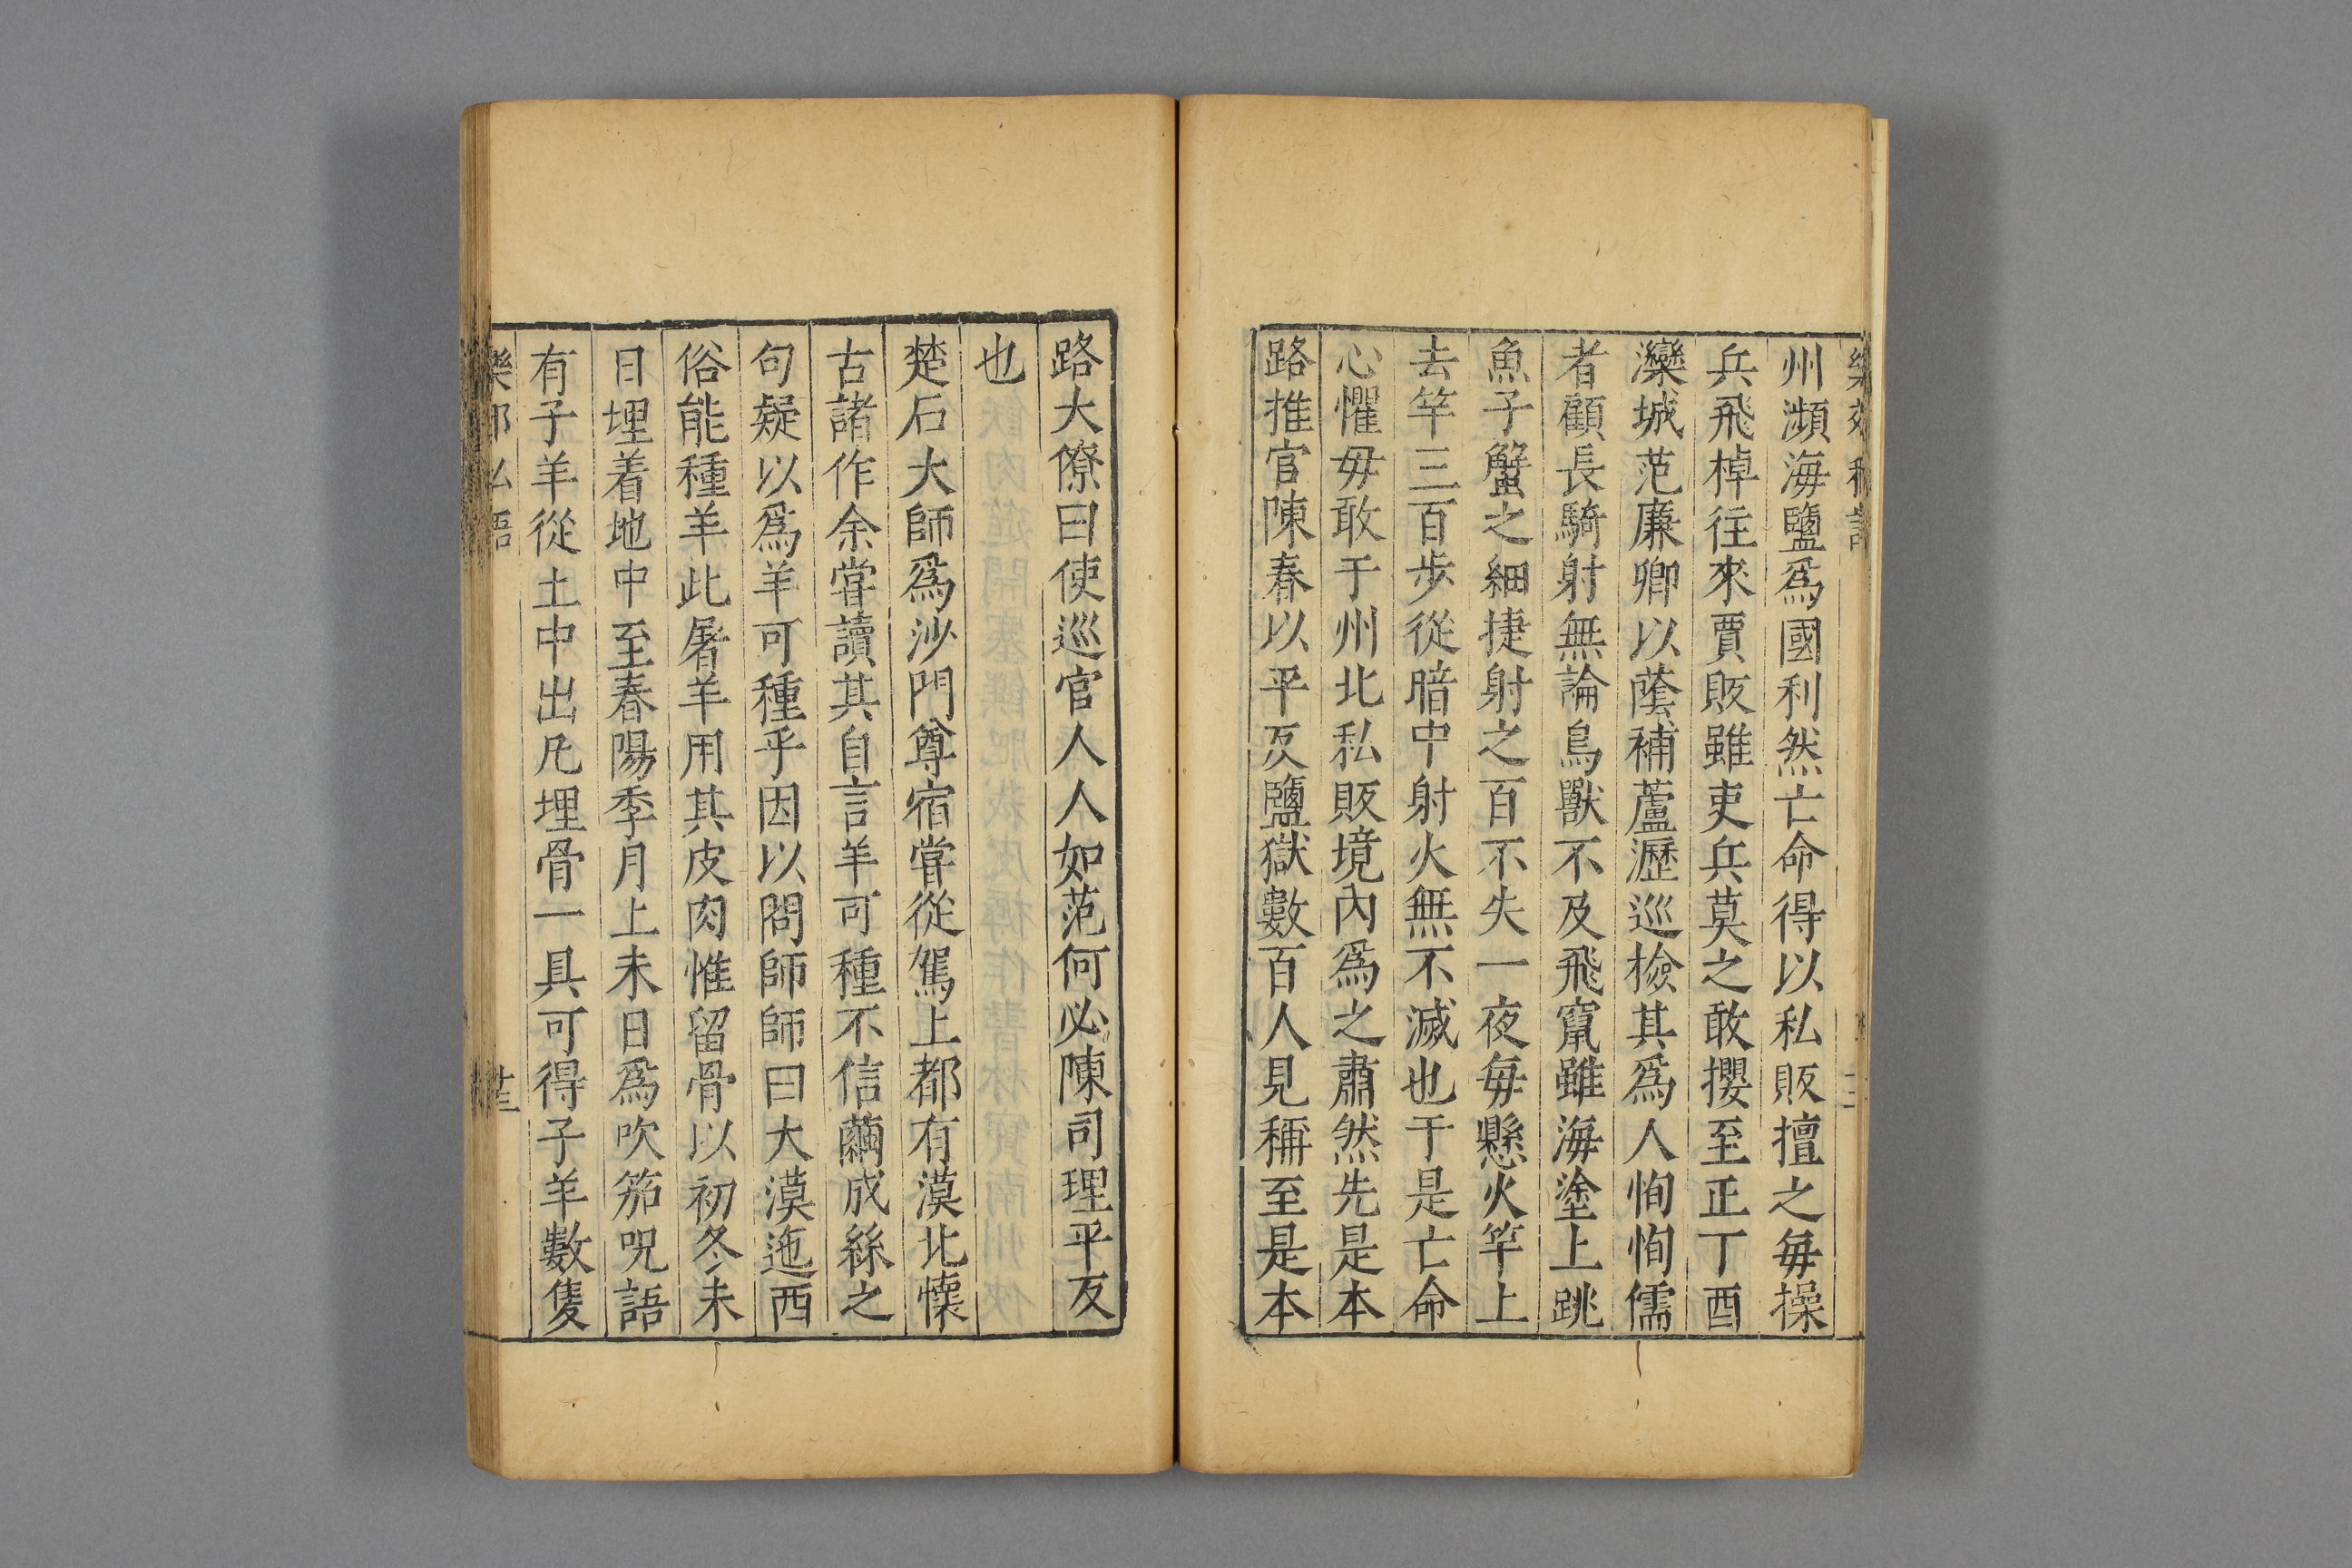 州瀕海鹽爲國利然亡命得以私販擅之每操
兵飛棹往來賈販雖吏兵莫之敢攖至正丁酉
灤城范廉卿以蔭補蘆瀝巡檢其爲人恂恂儒
者顧長騎射無論鳥獸不及飛竄雖海塗上跳
魚子蟹之細捷射之百不失一夜每懸火竿上
去竿三百步從暗中射火無不滅也于是亡命
心懼毋敢于州北私販境內爲之肅然先是本
路推官陳春以平反鹽獄數百人見稱至是本
路大僚曰使巡官人人如范何必陳司理平反
也
楚石大師爲沙門尊宿嘗從駕上都有漠北懷
古諸作余嘗讀其自言羊可種不信繭成絲之
句疑以爲羊可種乎因以問師師曰大漠迤西
俗能種羊此屠羊用其皮肉惟留骨以初冬未
日埋着地中至春陽季月上未日爲吹笳呪語
有子羊從土中出凡埋骨一具可得子羊數隻